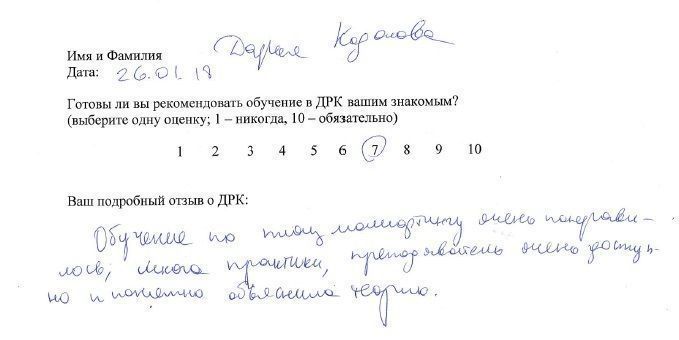 Имя и Фамилия Дарья
Дата: 26.01.18
Готовы ли вы рекомендовать обучение в ДРК вашим знакомым?
(выберите одну оценку; 1 – никогда, 10 – обязательно)
1 2 3 4 5 6 7 8 9 10
Ваш подробный отзыв о ДРК:
Обучение по очень понрави-
лось, много практики, преподаватель очень доступ-
но и понятно объяснила теорию.